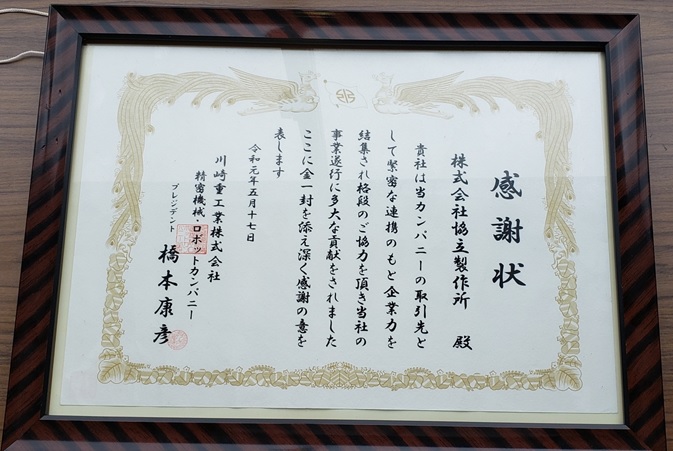 感謝状
株式会社協立製作所 殿
貴社は当カンパニーの取引先と
して緊密な連携のもと企業力を
結集され格段のご協力を頂き当社の
事業遂行に多大な貢献をされました
ここに金一封を添え深く感謝の意を
表します
令和元年五月十七日
川崎重工業株式会社
精密機械・ロボットカンパニー
プレジデント
橋本康彦